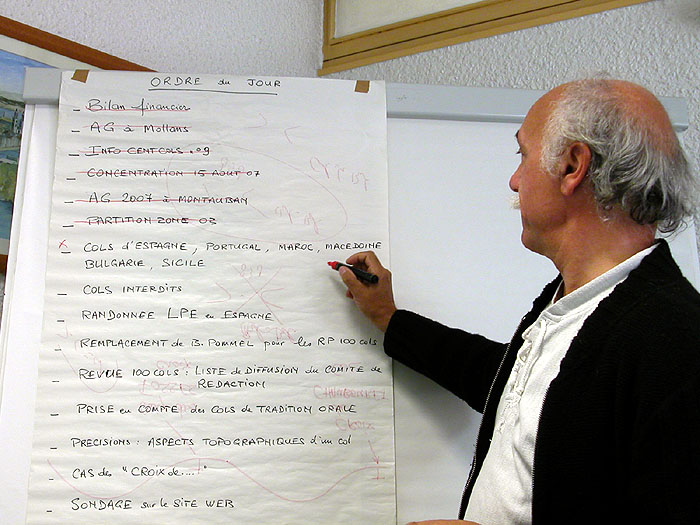 ORDRE du JOUR
- Bilan financier
- AG à Mollans
- INFO CENTCOLS
- CONCENTRATION 15 AOUT 07
- AG 2007 à MONTAUBAN
- PARTITION ZONE 03
x - COLS d'ESPAGNE, PORTUGAL, MAROC, MACEDOINE
BULGARIE, SICILE
- COLS INTERDITS
- RANDONNEE LPE en ESPAGNE
- REMPLACEMENT de B. POMMEL pour les RP 100 cols
- REVUE 100 COLS : LISTE de DIFFUSION du COMITE de
REDACTION
- PRISE en COMPTE des COLS de TRADITION ORALE
- PRECISIONS : ASPECTS TOPOGRAPHIQUES d'un col
- CAS des "CROIX de....."
- SONDAGE sur le SITE WEB